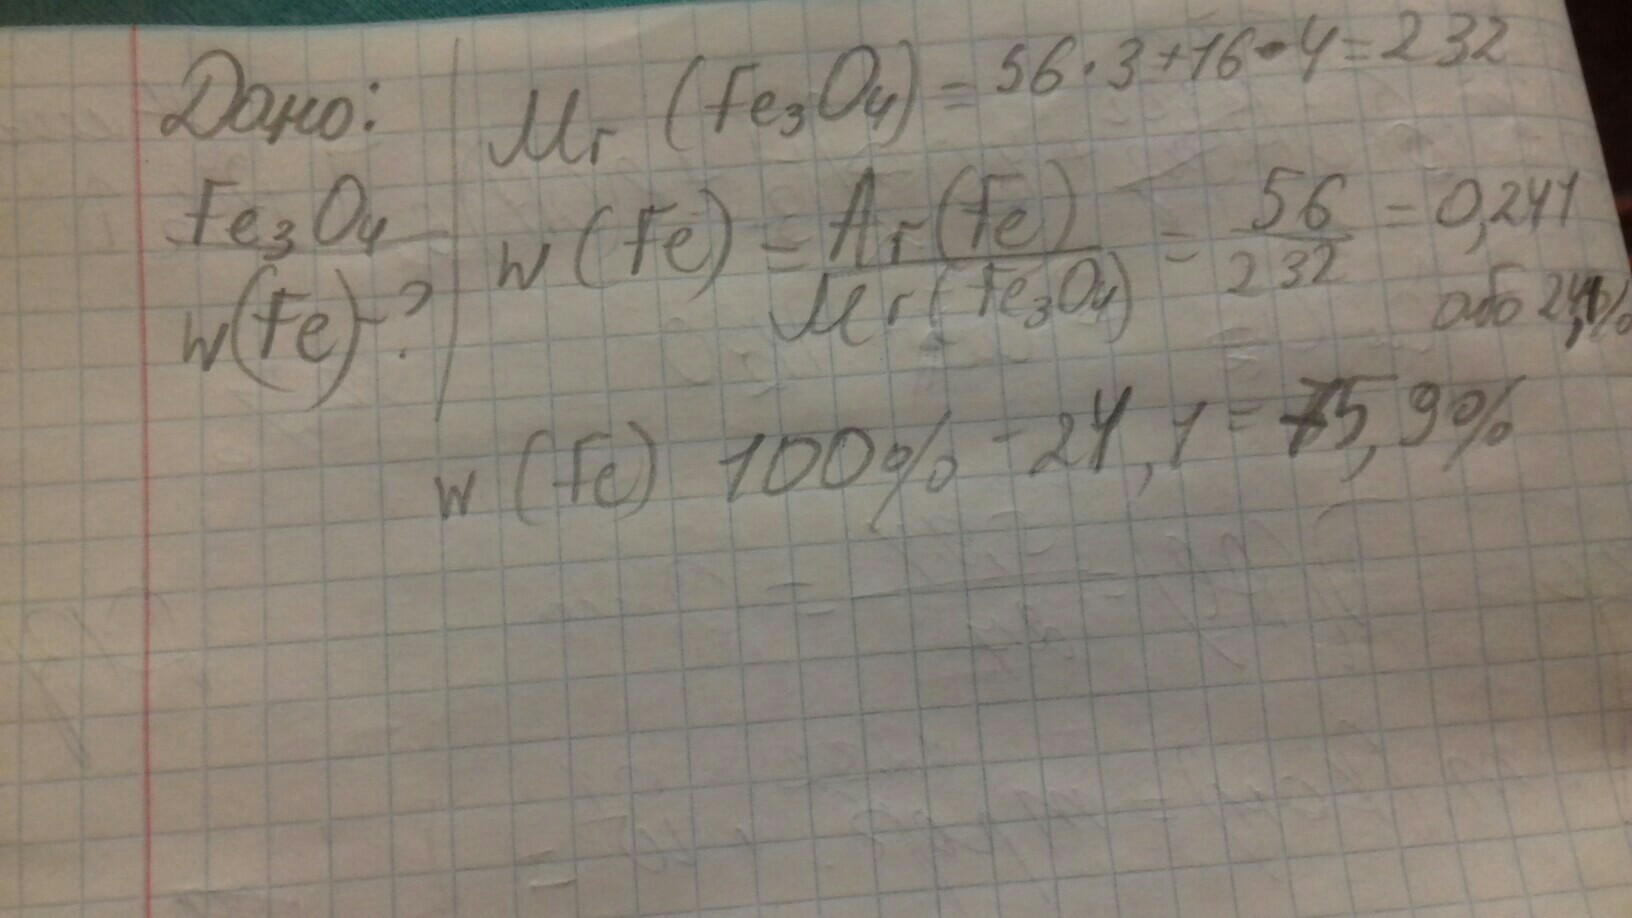 Дано:
Fe₃O₄
w(Fe)-?
Mr (Fe₃O₄) = 56·3+16·4=232
w(Fe) = Ar(Fe) / Mr(Fe₃O₄) = 56 / 232 = 0,241
або 24,1%
w (Fe) 100% - 24,1 = 75,9%